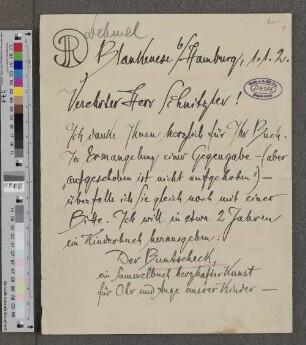 Dehmel
Blankenese b/Hamburg, 1.1.2.
Verehrter Herr Schnitzler!
Ich danke Ihnen herzlich für Ihr Buch.
In Ermangelung einer Gegengabe – (aber
„aufgeschoben ist nicht aufgehoben“) –
überfalle ich Sie gleich noch mit einer
Bitte. Ich will in etwa 2 Jahren
ein Kinderbuch herausgeben:
Der Buntscheck,
ein Sammelbuch herzhafter Kunst
für Ohr und Auge unsrer Kinder –